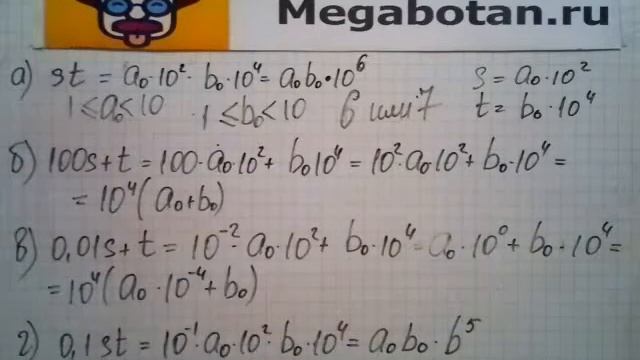 Megabotan.ru
а) st = a₀·10²· b₀·10⁴= a₀b₀·10⁶ s = a₀·10²
1 ≤a₀<10 1 ≤b₀<10 6 или 7 t = b₀·10⁴
б) 100s+t = 100·a₀·10²+ b₀10⁴ = 10²·a₀10²+ b₀·10⁴ =
= 10⁴(a₀+b₀)
в) 0,01s+t = 10⁻²·a₀·10²+ b₀·10⁴= a₀·10⁰+ b₀·10⁴=
=10⁴(a₀·10⁻⁴+b₀)
г) 0,1st = 10⁻¹·a₀·10²·b₀·10⁴= a₀b₀·b⁵